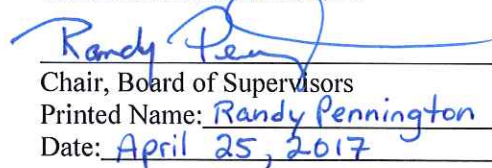 Randy Penn
Chair, Board of Supervisors
Printed Name: Randy Pennington
Date: April 25, 2017